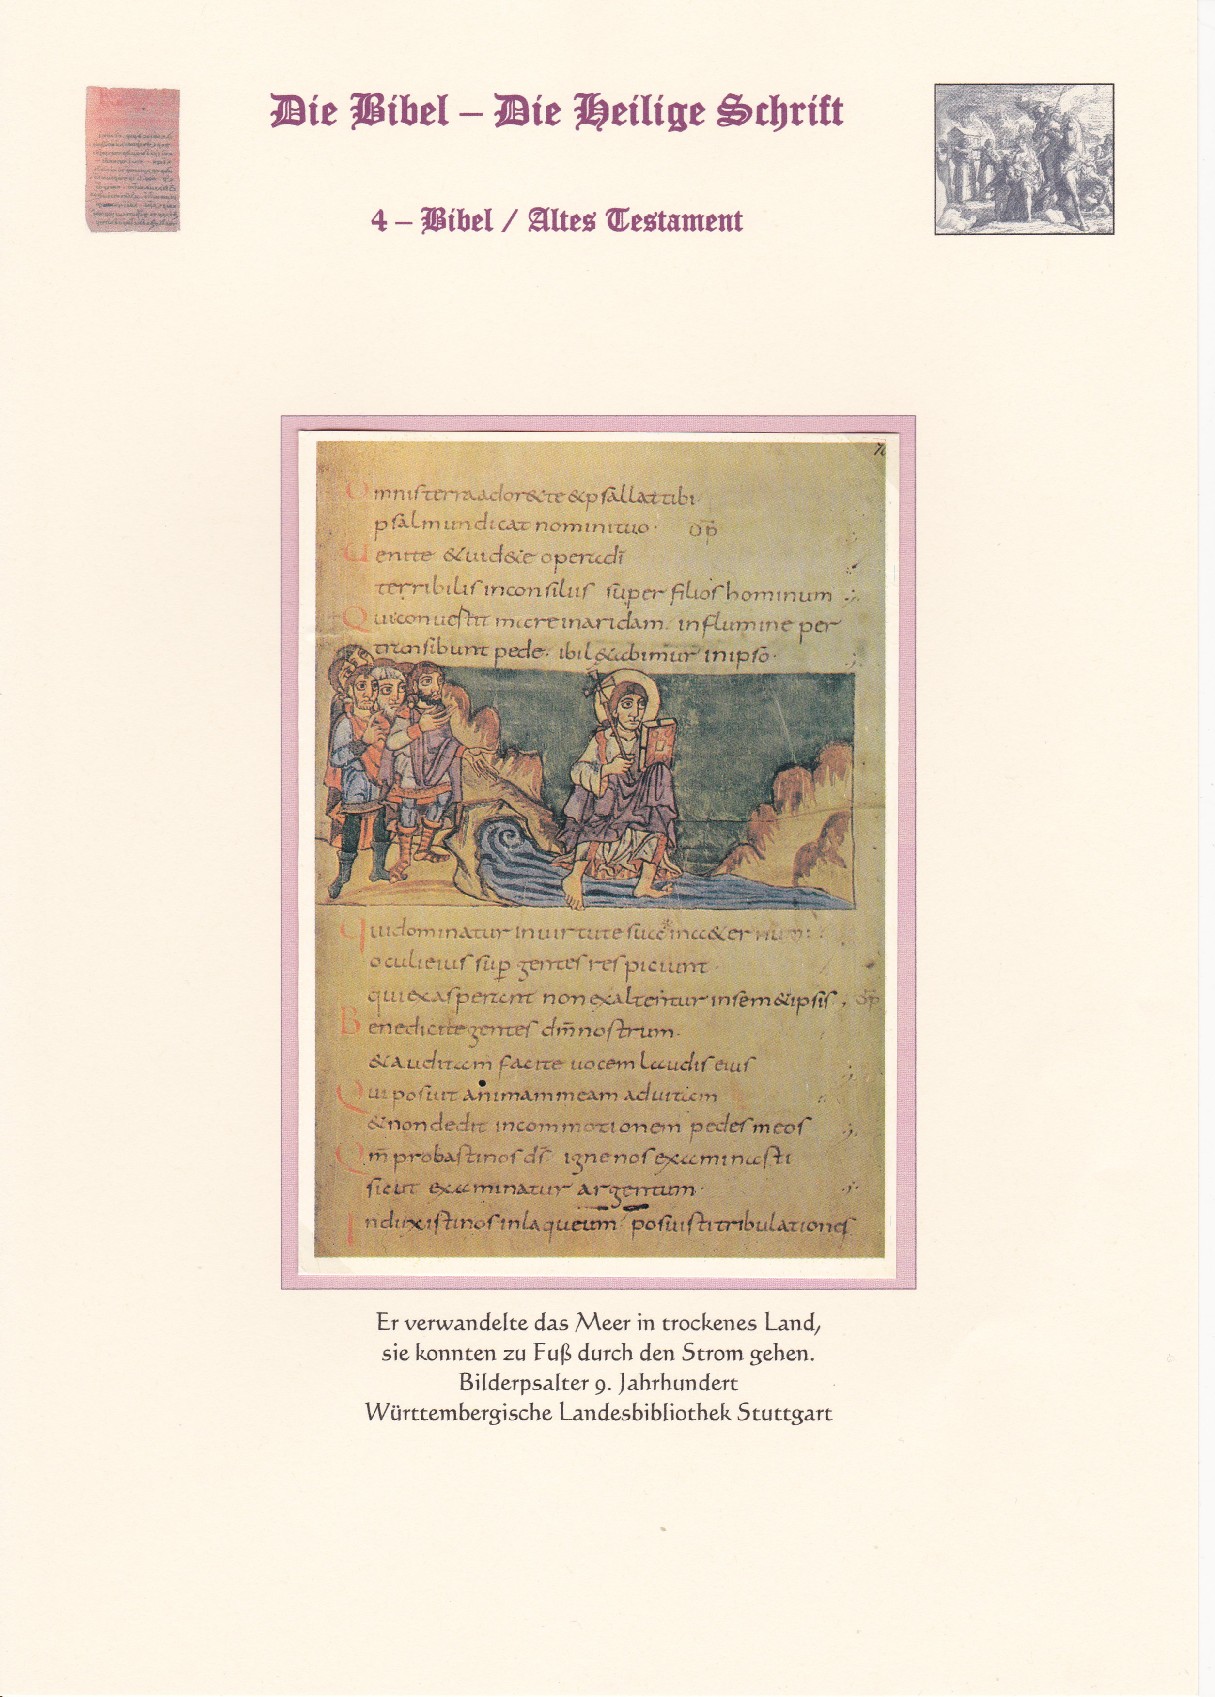 Die Bibel – Die Heilige Schrift
4 – Bibel / Altes Testament
Omnis terra ador&te &psallat tibi
psalmum dicat nomini tuo·
Uenite &uid&e opera dī
terribilis in consiliis super filios hominum
Qui conuertit mare in aridam. in flumine per
transibunt pede· ibi l&abimur in ipso·
Qui dominatur in uirtute sua in &ernum
oculi eius sup gentes respiciunt·
qui exasperant non exaltentur in sem&ipsis
Benedicite gentes dm̄ nostrum·
&auditam facite uocem laudis eius
Qui posuit animam meam ad uitam
&non dedit in commotionem pedes meos
Qm̄ probasti nos ds̄ igne nos examinasti
sicut examinatur argentum·
Induxisti nos in laqueum posuisti tribulationes
Er verwandelte das Meer in trockenes Land,
sie konnten zu Fuß durch den Strom gehen.
Bilderpsalter 9. Jahrhundert
Württembergische Landesbibliothek Stuttgart